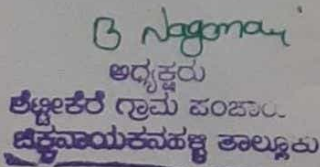 B Nagamani
ಅಧ್ಯಕ್ಷರು
ಶೆಟ್ಟೀಕೆರೆ ಗ್ರಾಮ ಪಂಚಾಯ
ಚಿಕ್ಕನಾಯಕನಹಳ್ಳಿ ತಾಲ್ಲೂಕು